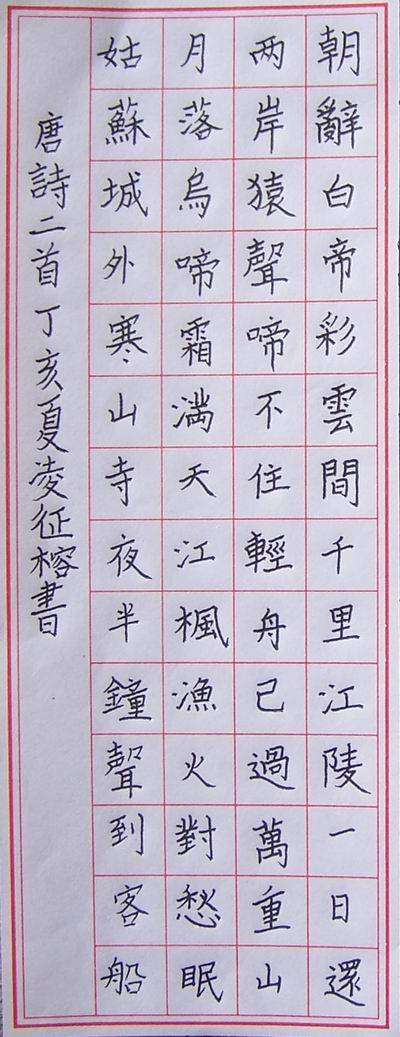 朝辭白帝彩雲間千里江陵一日還
两岸猿聲啼不住輕舟已過萬重山
月落烏啼霜满天江楓漁火對愁眠
姑蘇城外寒山寺夜半鐘聲到客船
唐詩二首丁亥夏凌征榕書